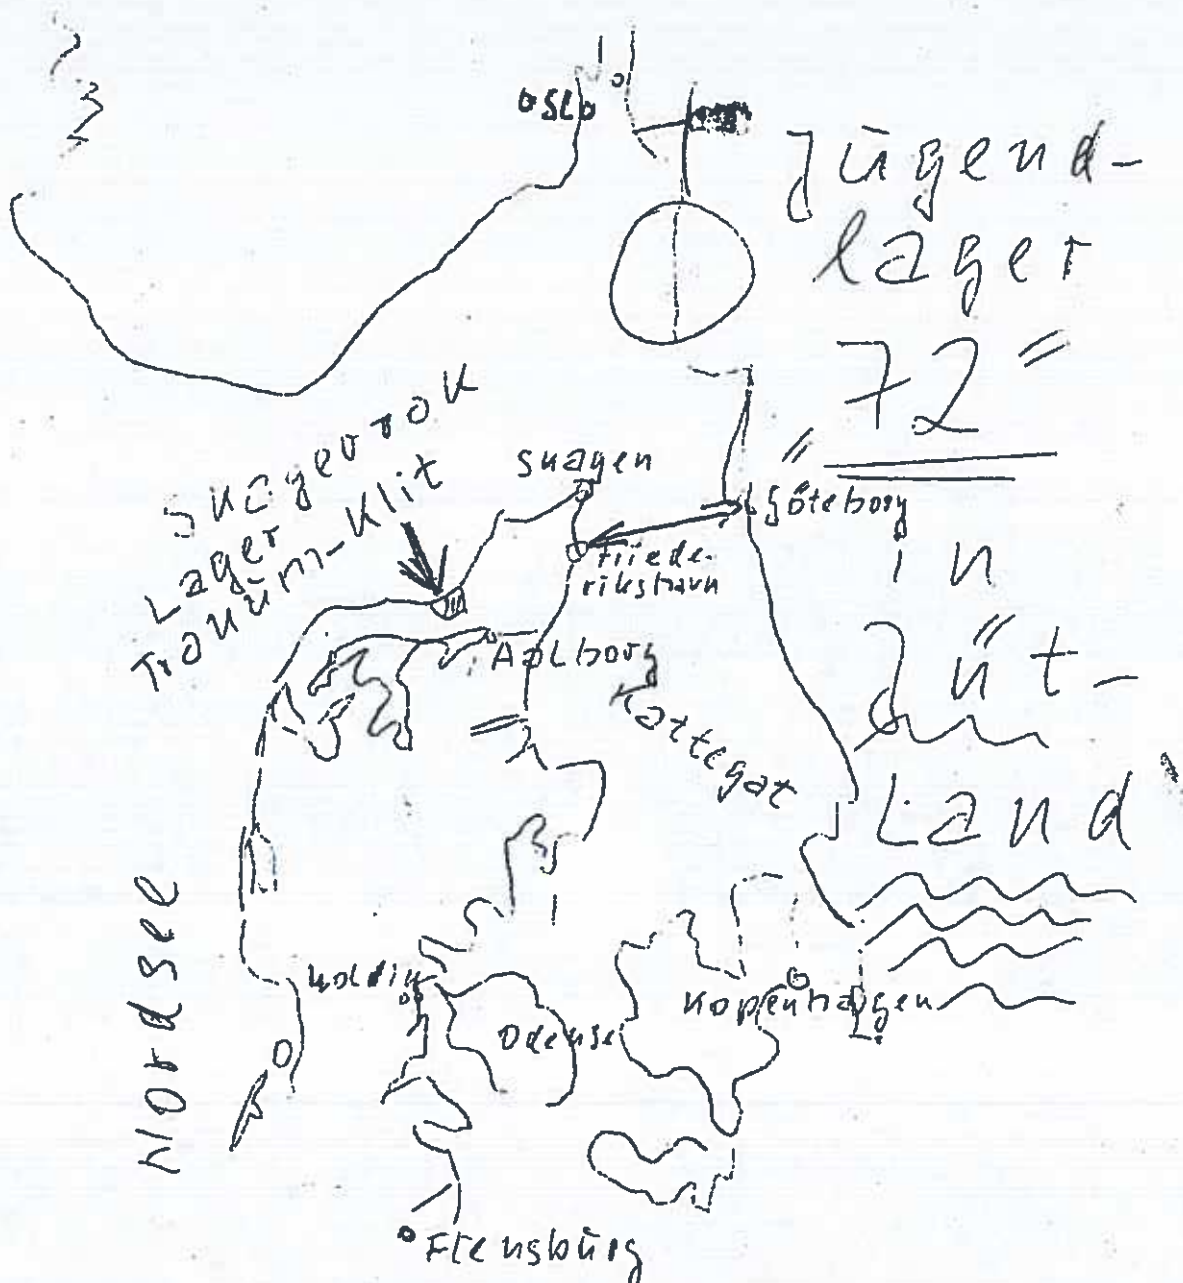 OSLO
Jūgend-
lager
"72"
in
Jüt-
Land
Skagerrok
Lager
Tranūm-Klit
Skagen
Göteborg
Friede-
rikshavn
Aalborg
Kattegat
Nordsee
Koldin
Odense
Kopenhagen
Flensbūrg